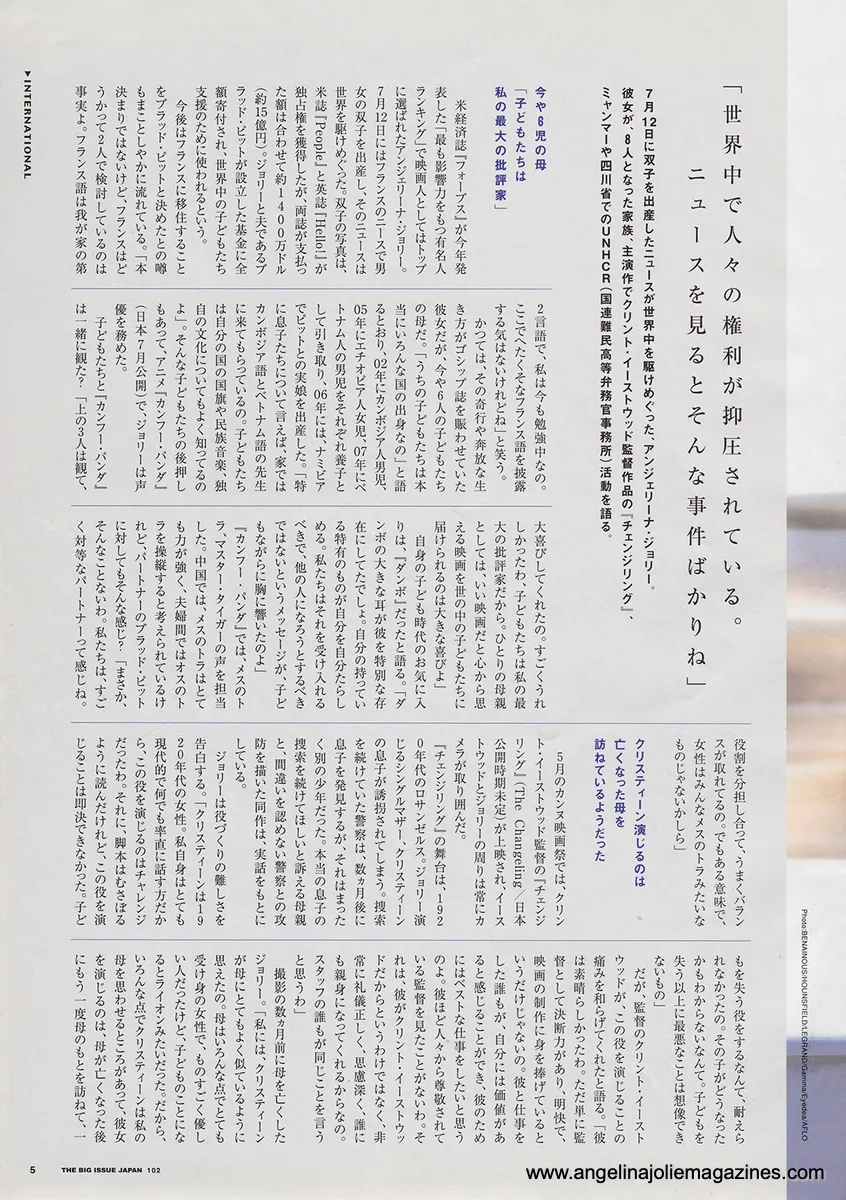 ▼INTERNATIONAL
「世界中で人々の権利が抑圧されている。
ニュースを見るとそんな事件ばかりね」
7月12日に双子を出産したニュースが世界中を駆けめぐった、アンジェリーナ・ジョリー。
彼女が、8人となった家族、主演作でクリント・イーストウッド監督作品の『チェンジリング』、
ミャンマーや四川省でのUNHCR(国連難民高等弁務官事務所)活動を語る。
今や6児の母
「子どもたちは
私の最大の批評家」
米経済誌『フォーブス』が今年発
表した「最も影響力をもつ有名人
ランキング」で映画人としてはトップ
に選ばれたアンジェリーナ・ジョリー。
7月12日にはフランスのニースで男
女の双子を出産し、そのニュースは
世界を駆けめぐった。双子の写真は、
米誌『People』と英誌『Hello!』が
独占権を獲得したが、両誌が支払っ
た額は合わせて約1400万ドル
(約15億円)。ジョリーと夫であるブ
ラッド・ピットが設立した基金に全
額寄付され、世界中の子どもたち
支援のために使われるという。
今後はフランスに移住すること
をブラッド・ピットと決めたとの噂
もまことしやかに流れている。「本
決まりではないけど、フランスはど
うかって2人で検討しているのは
事実よ。フランス語は我が家の第
2言語で、私は今も勉強中なの。
ここでへたくそなフランス語を披露
する気はないけれどね」と笑う。
かつては、その奇行や奔放な生
き方がゴシップ誌を賑わせていた
彼女だが、今や6人の子どもたち
の母だ。「うちの子どもたちは本
当にいろんな国の出身なの」と語
るとおり、02年にカンボジア人男児、
05年にエチオピア人女児、07年にベ
トナム人の男児をそれぞれ養子と
して引き取り、06年には、ナミビア
でピットとの実娘を出産した。「特
に息子たちについて言えば、家では
カンボジア語とベトナム語の先生
に来てもらっているの。子どもたち
は自分の国の国旗や民族音楽、独
自の文化についてもよく知ってるの
よ」。そんな子どもたちの後押し
もあって、アニメ『カンフー・パンダ』
(日本7月公開)で、ジョリーは声
優を務めた。
子どもたちと『カンフー・パンダ』
は一緒に観た?「上の3人は観て、
大喜びしてくれたの。すごくうれ
しかったわ、子どもたちは私の最
大の批評家だから。ひとりの母親
としては、いい映画だと心から思
える映画を世の中の子どもたちに
届けられるのは大きな喜びよ」
自身の子ども時代のお気に入
りは、『ダンボ』だったと語る。「ダ
ンボの大きな耳が彼を特別な存
在にしてたでしょ。自分の持ってい
る特有のものが自分を自分たらし
める。私たちはそれを受け入れる
べきで、他の人になろうとするべき
ではないというメッセージが、子ど
もながらに胸に響いたのよ」
『カンフー・パンダ』では、メスのト
ラ、マスター・タイガーの声を担当
した。中国では、メスのトラはとて
も力が強く、夫婦間ではオスのト
ラを操縦すると考えられているけ
れど、パートナーのブラッド・ピット
に対してもそんな感じ?「まさか、
そんなことないわ。私たちは、すご
く対等なパートナーって感じね。
役割を分担し合って、うまくバラン
スが取れてるの。でもある意味で、
女性はみんなメスのトラみたいな
ものじゃないかしら」
クリスティーン演じるのは
亡くなった母を
訪ねているようだった
5月のカンヌ映画祭では、クリン
ト・イーストウッド監督の『チェンジ
リング』(The Changeling/日本
公開時期未定)が上映され、イース
トウッドとジョリーの周りは常にカ
メラが取り囲んだ。
『チェンジリング』の舞台は、192
0年代のロサンゼルス。ジョリー演
じるシングルマザー、クリスティーン
の息子が誘拐されてしまう。捜索
を続けていた警察は、数ヵ月後に
息子を発見するが、それはまった
く別の少年だった。本当の息子の
捜索を続けてほしいと訴える母親
と、間違いを認めない警察との攻
防を描いた同作は、実話をもとに
している。
ジョリーは役づくりの難しさを
告白する。「クリスティーンは19
20年代の女性。私自身はとても
現代的で何でも率直に話す方だか
ら、この役を演じるのはチャレンジ
だったわ。それに、脚本はむさぼる
ように読んだけれど、この役を演
じることは即決できなかった。子ど
もを失う役をするなんて、耐えら
れなかったの。その子がどうなった
かもわからないなんて。子どもを
失う以上に最悪なことは想像でき
ないもの」
だが、監督のクリント・イースト
ウッドが、この役を演じることの
痛みを和らげてくれたと語る。「彼
は素晴らしかったわ。ただ単に監
督として決断力があり、明快で、
映画の制作に身を捧げていると
いうだけじゃないの。彼と仕事を
した誰もが、自分には価値があ
ると感じることができ、彼のため
にはベストな仕事をしたいと思う
のよ。彼ほど人々から尊敬されて
いる監督を見たことがないわ。そ
れは、彼がクリント・イーストウッ
ドだからというわけではなく、非
常に礼儀正しく、思慮深く、誰に
も親身になってくれるからなの。
スタッフの誰もが同じことを言う
と思うわ」
撮影の数ヵ月前に母を亡くした
ジョリー。「私には、クリスティーン
が母にとてもよく似ているように
思えたの。母はいろんな点でとても
受け身の女性で、ものすごく優し
い人だったけど、子どものことにな
るとライオンみたいだった。だから、
いろんな点でクリスティーンは私の
母を思わせるところがあって、彼女
を演じるのは、母が亡くなった後
にもう一度母のもとを訪ねて、一
Photo:BENAINOUS/HOUNSFIELD/LEGRAND/Gamma/Eyedea/AFLO
5 THE BIG ISSUE JAPAN 102
www.angelinajoliemagazines.com